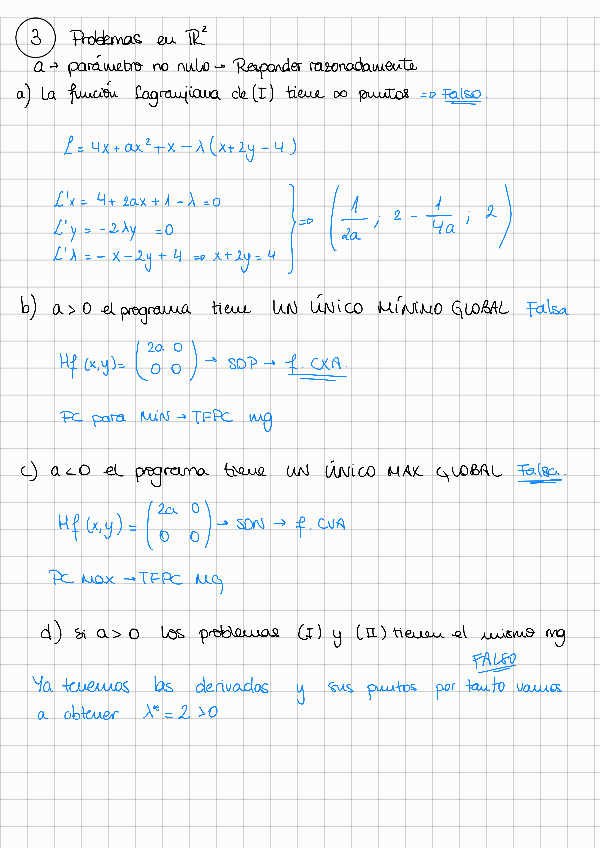 3 Problemas en ℝ²
a → parámetro no nulo → Responder razonadamente
a) La función Lagranjiana de (I) tiene ∞ puntos ⇒ Falso.
L = 4x + ax² + x − λ(x + 2y − 4)
L'x = 4 + 2ax + 1 − λ = 0
L'y = −2λy = 0
L'λ = −x − 2y + 4 ⇒ x + 2y = 4
⇒ (1/2a ; 2 − 1/4a ; 2)
b) a > 0 el programa tiene UN ÚNICO MÍNIMO GLOBAL Falsa
Hf (x,y) = (2a 0 0 0) → SDP → f. CXA.
PC para MIN → TFPC mg
c) a < 0 el programa tiene UN ÚNICO MAX GLOBAL Falsa.
Hf (x,y) = (2a 0 0 0) → SDN → f. CVA
PC MAX → TFPC Mg
d) si a > 0 los problemas (I) y (II) tienen el mismo mg
FALSO
Ya tenemos las derivadas y sus puntos por tanto vamos
a obtener λ* = 2 > 0